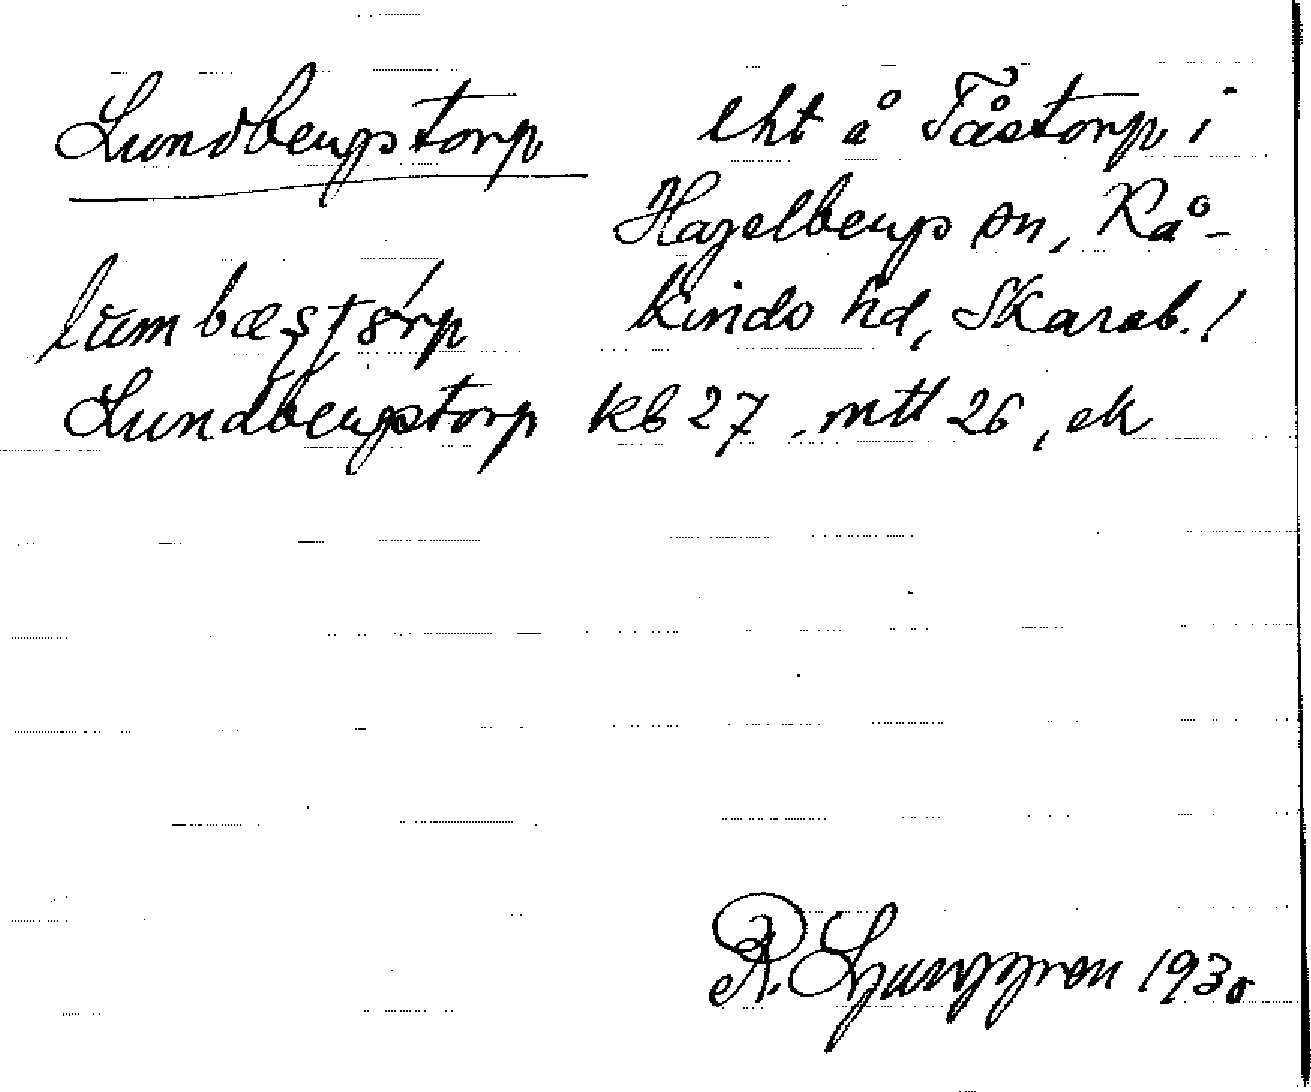 Lundbergstorp lht å Tåstorp i
Hagelbergs sn, Kå-
kinds hd, Skarab. l
Lundbergstorp kb 27, mtl 26, ek
R. Ljunggren 1930